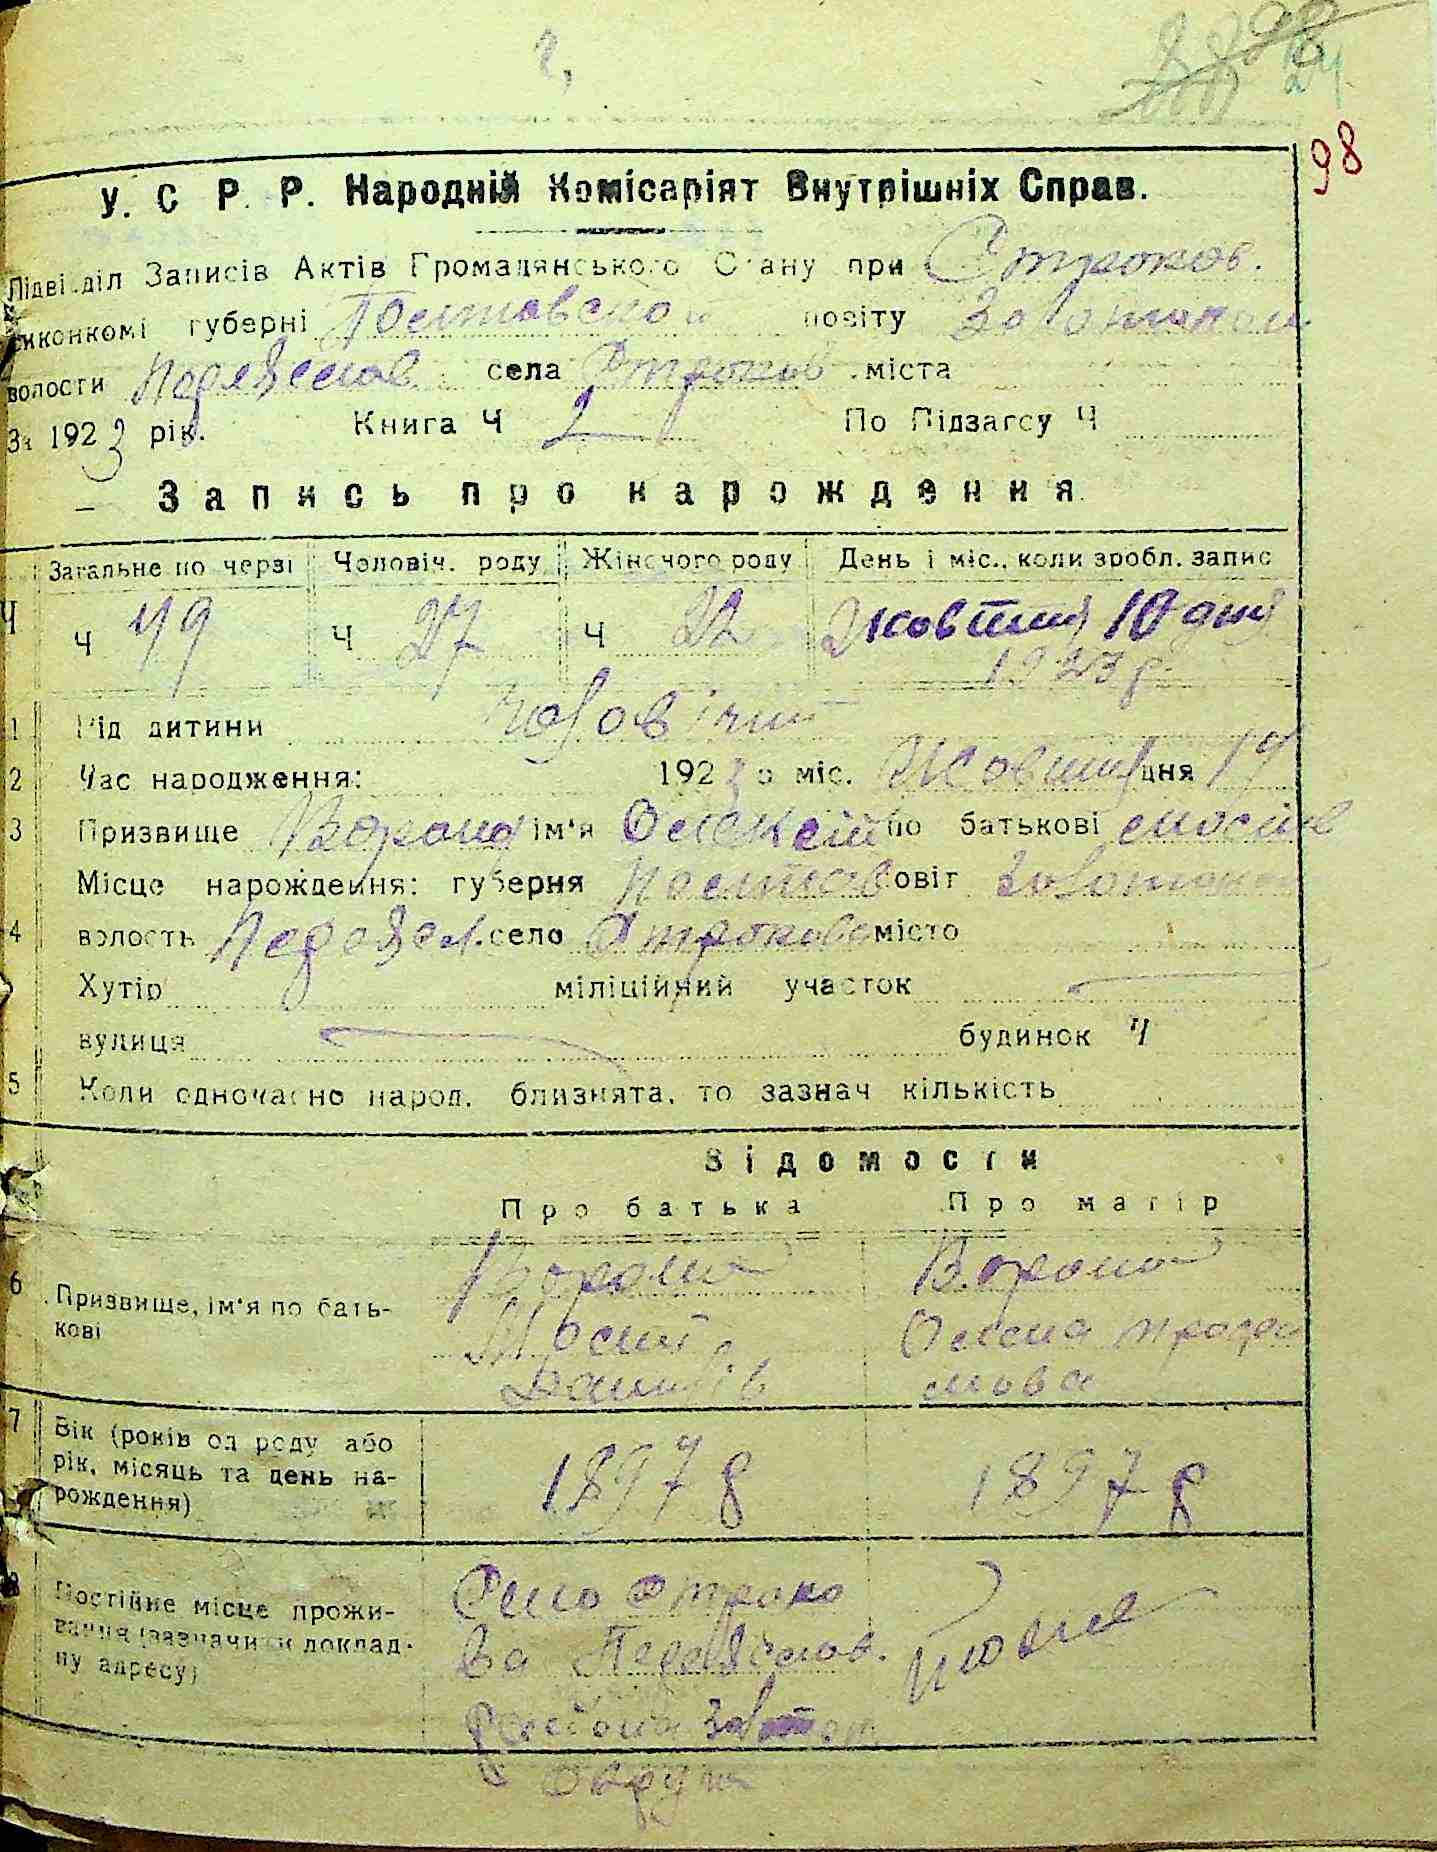 98
24
98
У. С. Р. Р. Народній Комісаріят Внутрішніх Справ.
Підвідділ Записів Актів Громадянського Стану при Строков.
виконкомі губерні Полтавской повіту Золотонош
волости Переяслав села Строков міста
За 1923 рік. Книга Ч 2 По Підзагсу Ч
Запись про народження
Загальне по черзі Чоловіч. роду Жіночого роду День і міс., коли зробл. запис
Ч Ч 49 Ч 27 Ч 22 Жовтня 10 дня
1923 р.
1 Рід дитини чоловічий
2 Час народження: 1923 о міс. Жовтня дня
3 Призвище Ворона ім'я Олексій по батькові
Місце нарождення: губерня Полтав овіт Золотонош
4 волость Переясл. село Строкова місто
Хутір міліційний участок
вулиця будинок Ч
5 Коли одночасно народ. близнята, то зазнач кількість
Відомости
Про батька Про матір
6 Призвище, ім'я по бать-
кові
Ворона
Мосий
Данилів
Ворона
Олена
7 Вік (років од роду або
рік, місяць та день на-
рождення)
1897 р 1897 р
8 Постійне місце прожи-
вання (зазначити доклад-
ну адресу)
Село Строко
ва Переяслов.
Району Золотон
Округи